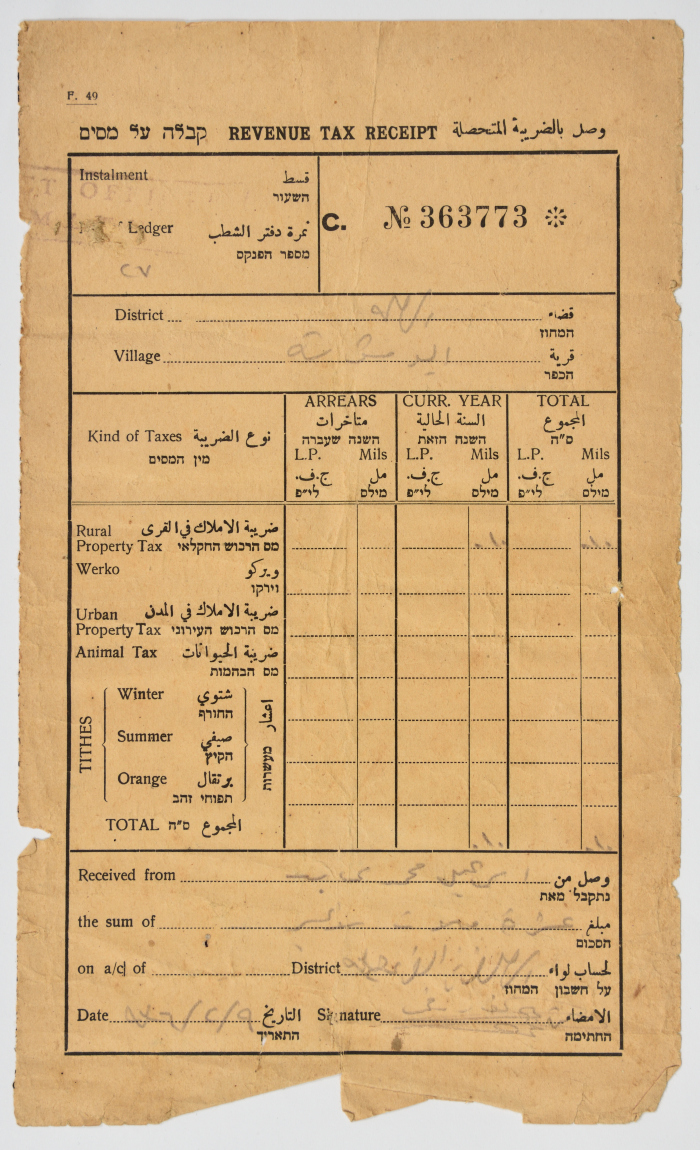 F. 49
קבלה על מסים REVENUE TAX RECEIPT وصل بالضريبة المتحصلة
Instalment قسط
השעור
Ledger نمرة دفتر الشطب
מספר הפנקס
C. № 363773
District قضاء
המחוז
Village قرية
הכפר
Kind of Taxes نوع الضريبة
מין המסים
ARREARS
متاخرات
השנה שעברה
L.P. Mils
ج.ف. مل
לי״פ מילס
CURR. YEAR
السنة الحالية
השנה הזאת
L.P. Mils
ج.ف. مل
לי״פ מילס
TOTAL
المجموع
ס״ה
L.P. Mils
ج.ف. مل
לי״פ מילס
Rural ضريبة الاملاك في القرى
Property Tax מס הרכוש החקלאי
Werko ويركو
וירקו
Urban ضريبة الاملاك في المدن
Property Tax מס הרכוש העירוני
Animal Tax ضريبة الحيوانات
מס הבהמות
TITHES
Winter شتوي
החורף
Summer صيفي
הקיץ
Orange برتقال
תפוחי זהב
اعشار
מעשרות
TOTAL ס״ה المجموع
Received from وصل من
נתקבל מאת
the sum of مبلغ
הסכום
on a/c of District لحساب لواء
על חשבון המחוז
Date التاريخ Signature الامضاء
התאריך החתימה